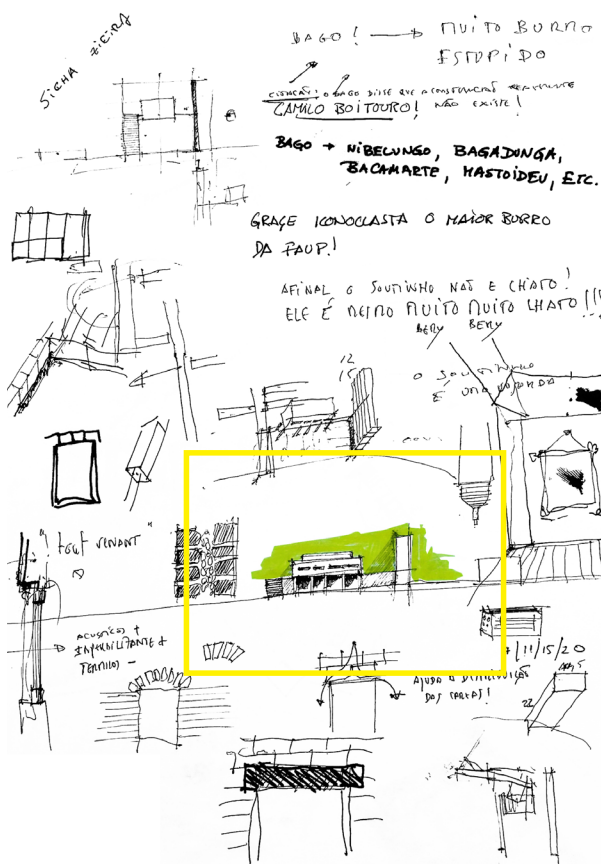 BAGO! → MUITO BURRO
ESTUPIDO
SICHA
CITAÇÃO: O BAGO DISSE QUE A CONSTRUÇÃO
CAMILO BOITOURO! NÃO EXISTE!
BAGO → NIBELUNGO, BAGADUNGA,
BACAMARTE, MASTOIDEU, ETC.
GRAÇE ICONOCLASTA O MAIOR BURRO
DA FAUP!
AFINAL O SOUTINHO NAO E CHATO!
ELE É MESMO MUITO MUITO CHATO!!!
BERY BERY
12
15
O SOUTINHO
É UMA
"TOUT VENANT"
ACUSTICO +
TERMICO -
7/11/15/20
AJUDA A DISTRIBUIÇÃO
DAS CARGAS!
22